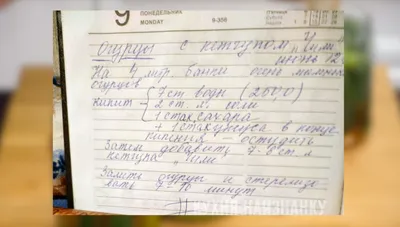 9 ПОНЕДЕЛЬНИК
MONDAY 9-356
Огурцы с кетчупом "Чили"
На 4 литр. банки
огурцов
кипит 7 ст воды (200,0)
2 ст л. соли
1 стак. сахара
+ 1 стак уксуса в конце
кипения — остудить
Затем добавить 7-8 ст л
кетчупа "Чили"
Залить огурцы и стерелизо
вать 7-10 минут
КУХНЯ НАИЗНАНКУ